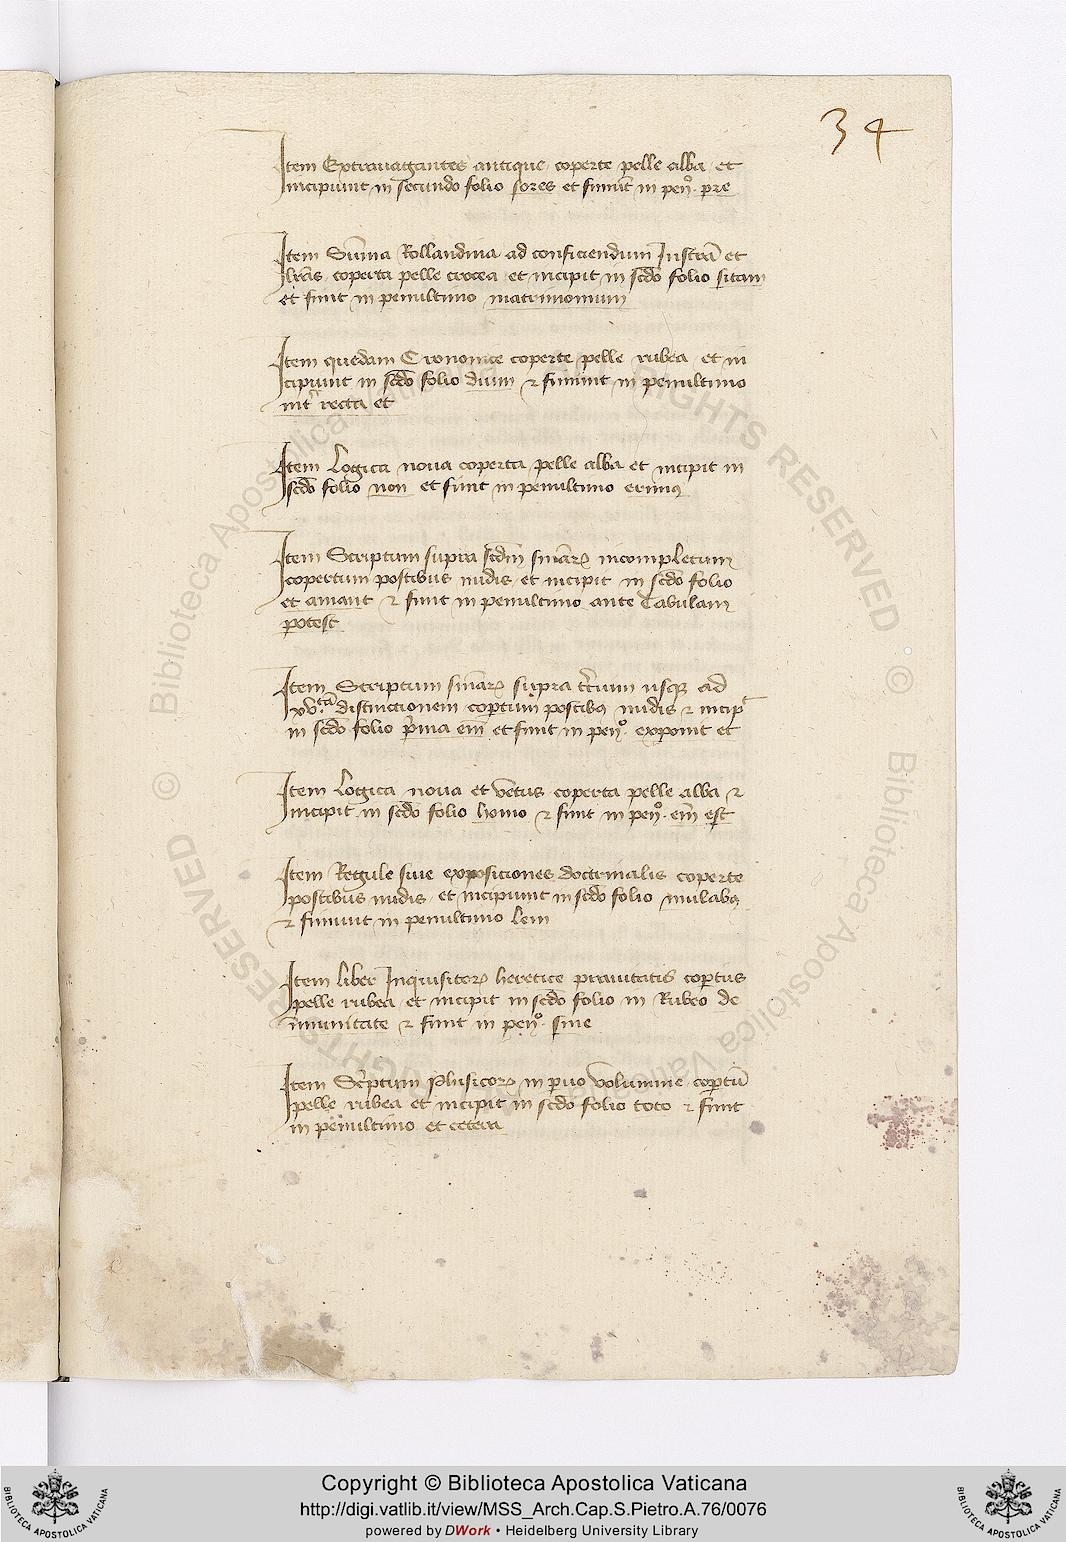 34
Item Extravagantes antique coperte pelle alba et
incipiunt in secundo folio sores et finiūt in pen̄º. pre
Item Sūma Rollandina ad conficiendum Instr̄a et
lr̄as coperta pelle crocea et incipit in scd̄o folio sitam
et finit in penultimo matrimonium
Item quedam Cronomice coperte pelle rubea et in
cipiunt in scd̄o folio dium ⁊ finiunt in penultimo
recta et
Item Logica noua coperta pelle alba et incipit in
scd̄o folio non et finit in penultimo erimꝰ
Item Scriptum supra scd̄m sn̄iaꝝ incompletum
copertum postibus nudis et incipit in scd̄o folio
et amant ⁊ finit in penultimo ante tabulam
potest
Item Scriptum sn̄iaꝝ supra t̄cium usqꝫ ad
xv.tā distinctionem cop̄tum postibꝰ nudis ⁊ incip̄t
in scd̄o folio p̄ma em̄ et finit in pen̄º. exponit et
Item Logica noua et vetus coperta pelle alba ⁊
incipit in scd̄o folio homo ⁊ finit in pen̄º. em̄ est
Item Regule siue exposiciones doctrinalis coperte
postibus nudis et incipiunt in scd̄o folio mulabꝰ
⁊ finiunt in penultimo lem
Item liber Inquisitoꝝ heretice prauitatis cop̄tus
pelle rubea et incipit in scd̄o folio in Rubeo de
īmunitate ⁊ finit in pen̄º. siue
Item Sc̄ptum phisicoꝝ in p̄uo volumine cop̄tū
pelle rubea et incipit in scd̄o folio toto ⁊ finit
in penultimo et cetera
© Biblioteca Apostolica Vaticana ALL RIGHTS RESERVED
© Biblioteca Apostolica Vaticana ALL RIGHTS RESERVED
BIBLIOTECA APOSTOLICA VATICANA
Copyright © Biblioteca Apostolica Vaticana
http://digi.vatlib.it/view/MSS_Arch.Cap.S.Pietro.A.76/0076
powered by DWork • Heidelberg University Library
BIBLIOTECA APOSTOLICA VATICANA